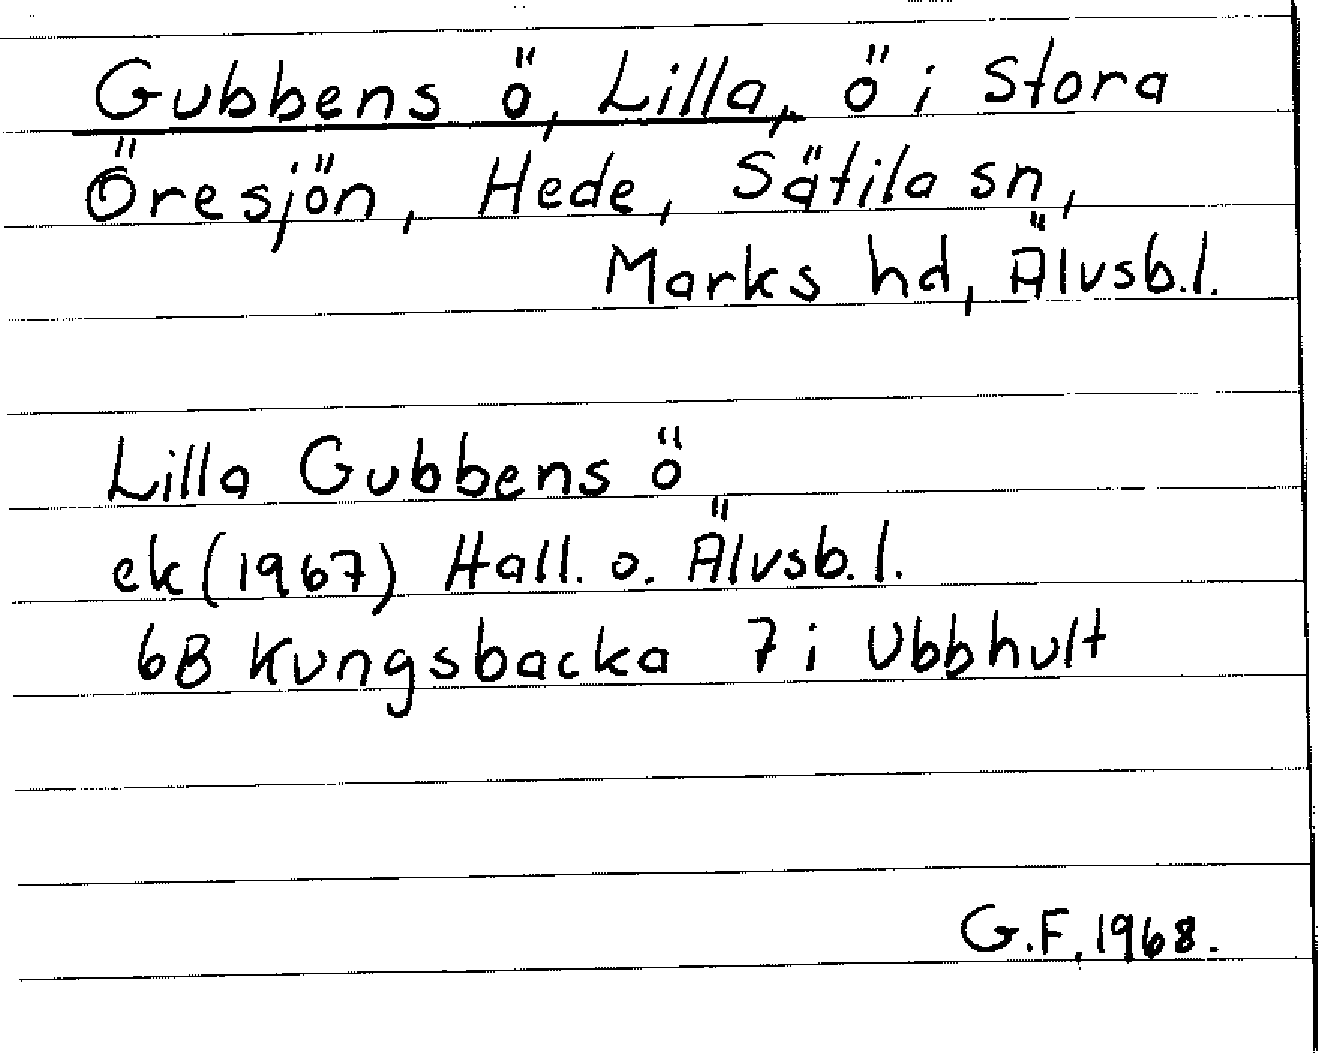 Gubbens ö, Lilla, ö i Stora
Öresjön, Hede, Sätila sn,
Marks hd, Älvsb.l.
Lilla Gubbens ö
ek (1967) Hall. o. Älvsb. l.
6B Kungsbacka 7 i Ubbhult
G.F. 1968.